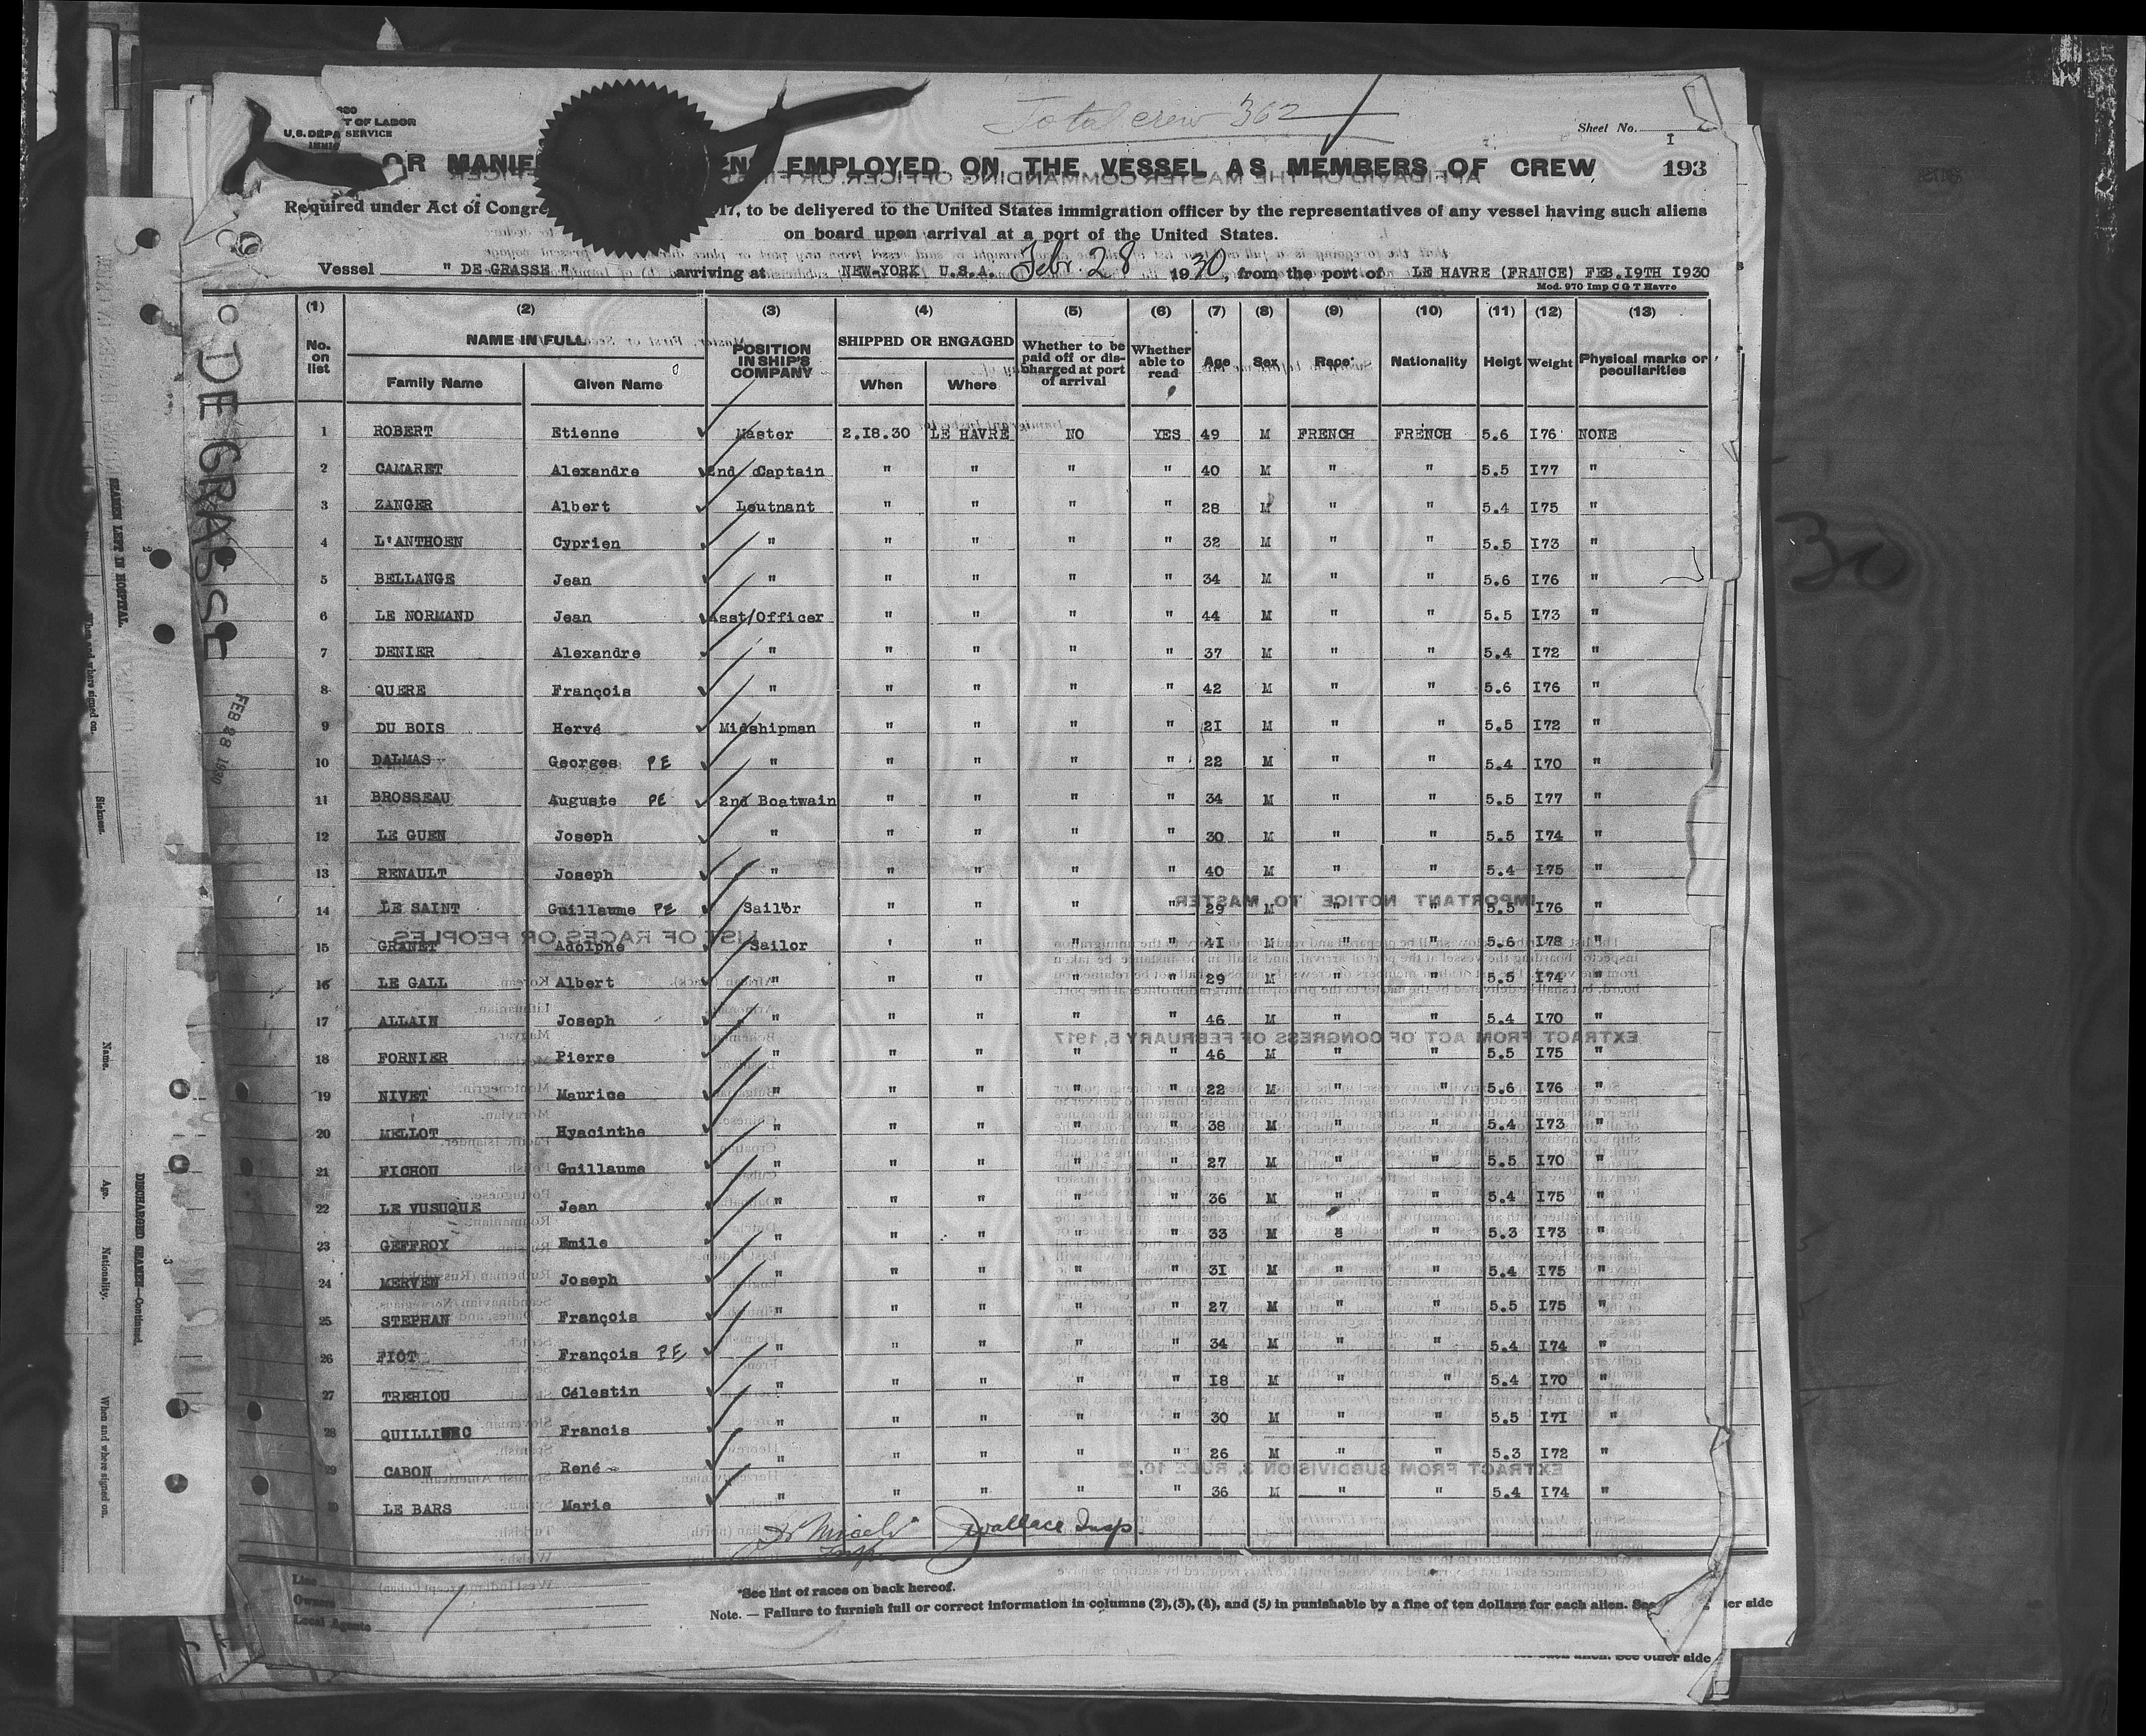 Total crew 362
T OF LABOR
U.S. DEPA SERVICE
Sheet No. I
OR MANIFE ENS EMPLOYED ON THE VESSEL AS MEMBERS OF CREW 193
Required under Act of Congre 17, to be delivered to the United States immigration officer by the representatives of any vessel having such aliens
on board upon arrival at a port of the United States.
Vessel " DE GRASSE " arriving at NEW-YORK U.S.A. Febr. 28 1930, from the port of LE HAVRE (FRANCE) FEB.19TH 1930
Mod. 970 Imp C G T Havre
(1) (2) (3) (4) (5) (6) (7) (8) (9) (10) (11) (12) (13)
No. on list NAME IN FULL POSITION IN SHIP'S COMPANY SHIPPED OR ENGAGED Whether to be paid off or discharged at port of arrival Whether able to read Age Sex Race* Nationality Heigt Weight Physical marks or peculiarities
Family Name Given Name When Where
1 ROBERT Etienne Master 2.18.30 LE HAVRE NO YES 49 M FRENCH FRENCH 5.6 I76 NONE
2 CAMARET Alexandre 2nd Captain " " " " 40 M " " 5.5 I77 "
3 ZANGER Albert Leutnant " " " " 28 M " " 5.4 I75 "
4 L'ANTHOEN Cyprien " " " " " 32 M " " 5.5 I73 "
5 BELLANGE Jean " " " " " 34 M " " 5.6 I76 "
6 LE NORMAND Jean Asst/Officer " " " " 44 M " " 5.5 I73 "
7 DENIER Alexandre " " " " " 37 M " " 5.4 I72 "
8 QUERE François " " " " " 42 M " " 5.6 I76 "
9 DU BOIS Hervé Midshipman " " " " 2I M " " 5.5 I72 "
10 DALMAS Georges PE " " " " " 22 M " " 5.4 I70 "
11 BROSSEAU Auguste PE 2nd Boatwain " " " " 34 M " " 5.5 I77 "
12 LE GUEN Joseph " " " " " 30 M " " 5.5 I74 "
13 RENAULT Joseph " " " " " 40 M " " 5.4 I75 "
14 LE SAINT Guillaume PE Sailor " " " " 29 M " " 5.5 I76 "
15 GRANET Adolphe Sailor ' " " " 4I M " " 5.6 I78 "
16 LE GALL Albert " " " " " 29 M " " 5.5 I74 "
17 ALLAIN Joseph " " " " " 46 M " " 5.4 I70 "
18 FORNIER Pierre " " " " " 46 M " " 5.5 I75 "
19 NIVET Maurice " " " " " 22 M " " 5.6 I76 "
20 MELLOT Hyacinthe " " " " " 38 M " " 5.4 I73 "
21 FICHOU Guillaume " " " " " 27 M " " 5.5 I70 "
22 LE VUSUQUE Jean " " " " " 36 M " " 5.4 I75 "
23 GEFFROY Emile " " " " " 33 M " " 5.3 I73 "
24 MERVEN Joseph " " " " " 3I M " " 5.4 I75 "
25 STEPHAN François " " " " " 27 M " " 5.5 I75 "
26 FIOT François PE " " " " " 34 M " " 5.4 I74 "
27 TREHIOU Célestin " " " " " I8 M " " 5.4 I70 "
28 QUILLIVEC Francis " " " " " 30 M " " 5.5 I7I "
29 CABON René " " " " " 26 M " " 5.3 I72 "
30 LE BARS Marie " " " " " 36 M " " 5.4 I74 "
Wallace Insp
Insp
Line
Owners
Local Agents
*See list of races on back hereof.
Note. — Failure to furnish full or correct information in columns (2),(3), (4), and (5) in punishable by a fine of ten dollars for each alien. See er side
each alien. See other side
DE GRASSE
FEB 28 1930
SEAMEN LEFT IN HOSPITAL.
When and where signed on.
Sickness.
DISCHARGED SEAMEN—Continued.
Name.
Age.
Nationality.
When and where signed on.
30